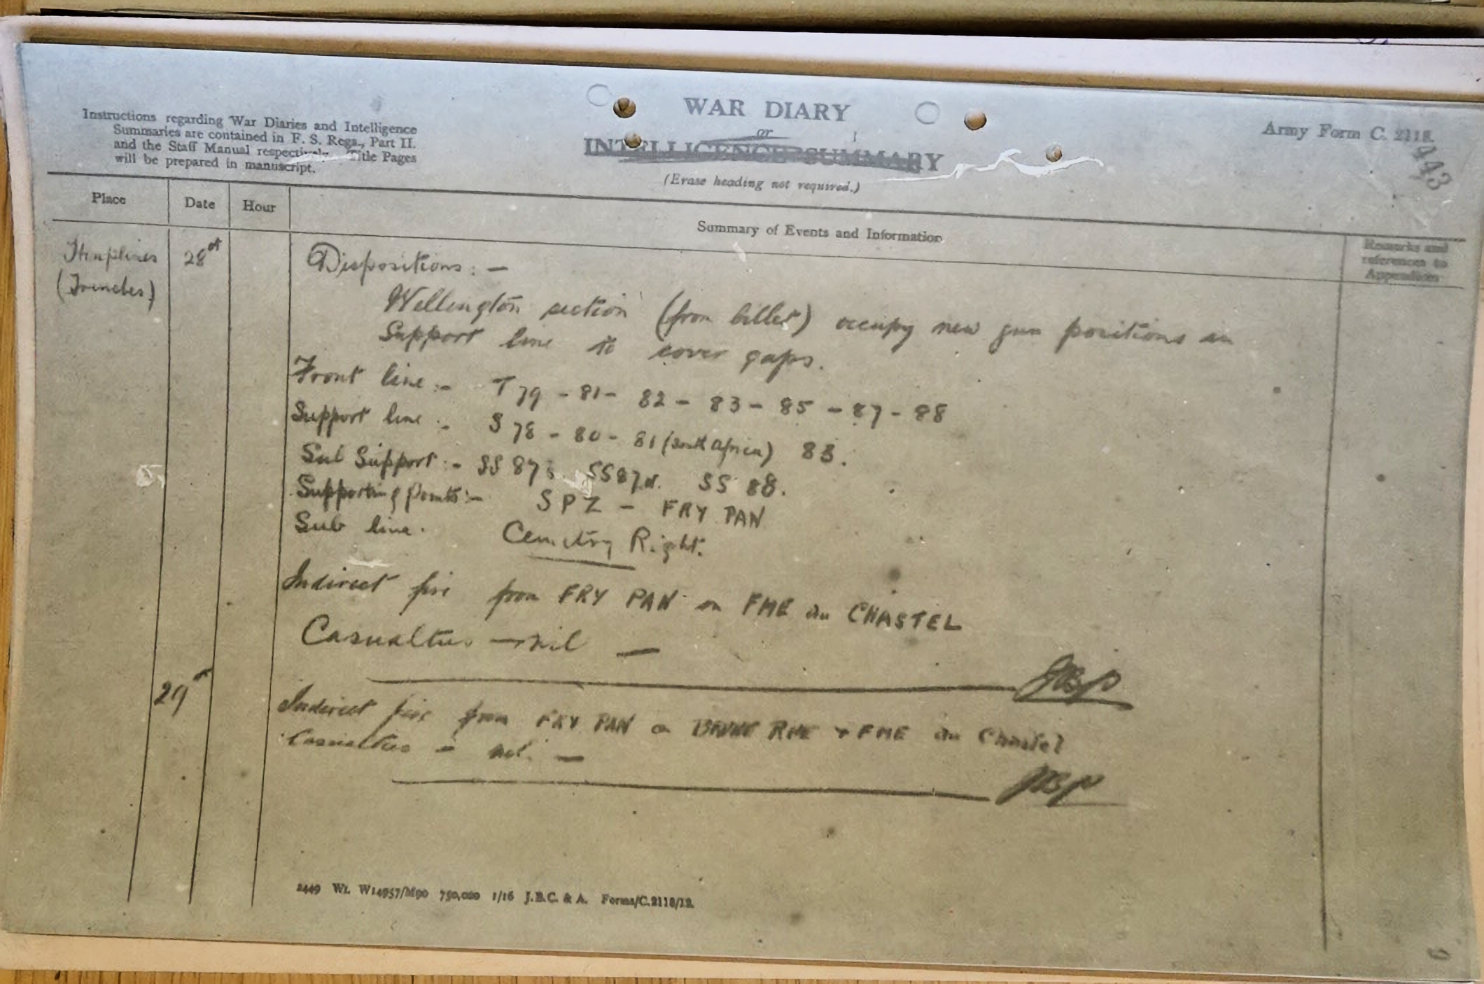 Instructions regarding War Diaries and Intelligence
Summaries are contained in F. S. Regs., Part II.
and the Staff Manual respectively. Title Pages
will be prepared in manuscript.
WAR DIARY
or
INTELLIGENCE SUMMARY
(Erase heading not required.)
Army Form C. 2118.
443
Place
Date
Hour
Summary of Events and Information
Remarks and
references to
Appendices
Houplines
(Trenches)
28
Dispositions : —
Wellington section (from billet) occupy new gun positions in
Support line to cover gaps.
Front line :- T 79 - 81 - 82 - 83 - 85 - 87 - 88
Support line :- S 78 - 80 - 81 (South Africa) 83.
Sub Support :- SS 87 SS 87 SS 88.
Supporting Points :- SPZ - FRY PAN
Sub line. Cemetry Right.
Indirect fire from FRY PAN on FME du CHASTEL
Casualties — nil —
29
Indirect fire from FRY PAN on RME + FME du Chastel
Casualties - nil. —
2449 Wt. W14957/M90 750,000 1/16 J.B.C. & A. Forms/C.2118/12.